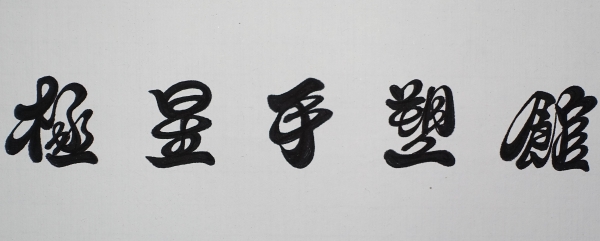 極星手塑館